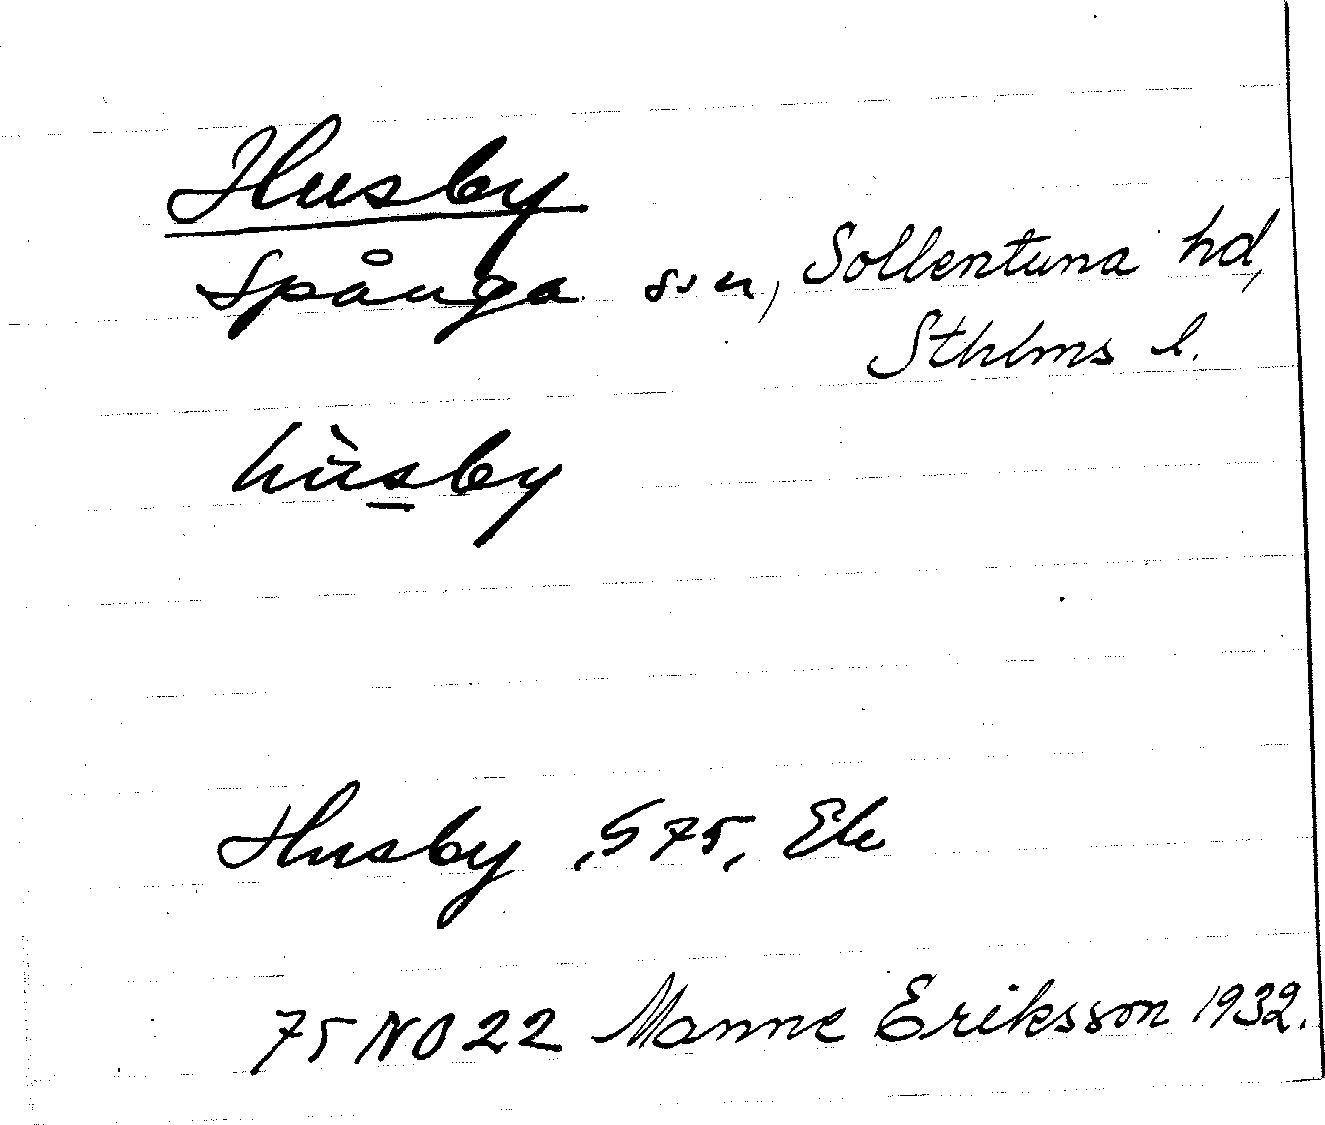 Husby
Spånga sn, Sollentuna hd,
Sthlms l.
hùsby
Husby, S 75, Ek
75 NO 22 Manne Eriksson 1932.